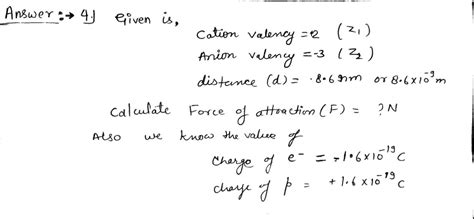 Answer :→ 4.] Given is,
Cation valency = 2 (Z1)
Anion valency = -3 (Z2)
distance (d) = .869nm or 8.6×10⁻⁹m
Calculate Force of attraction (F) = ?N
Also we know the value of
Charge of e⁻ = -1.6×10⁻¹⁹ C
charge of p = +1.6×10⁻¹⁹ C